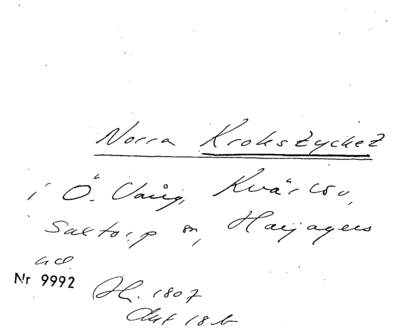 Norra Krokstycket
i Ö. Vång, Kvärlöv,
Saxtorp sn, Harjagers
hd.
Nr 9992
Sk. 1807
Akt 18 b